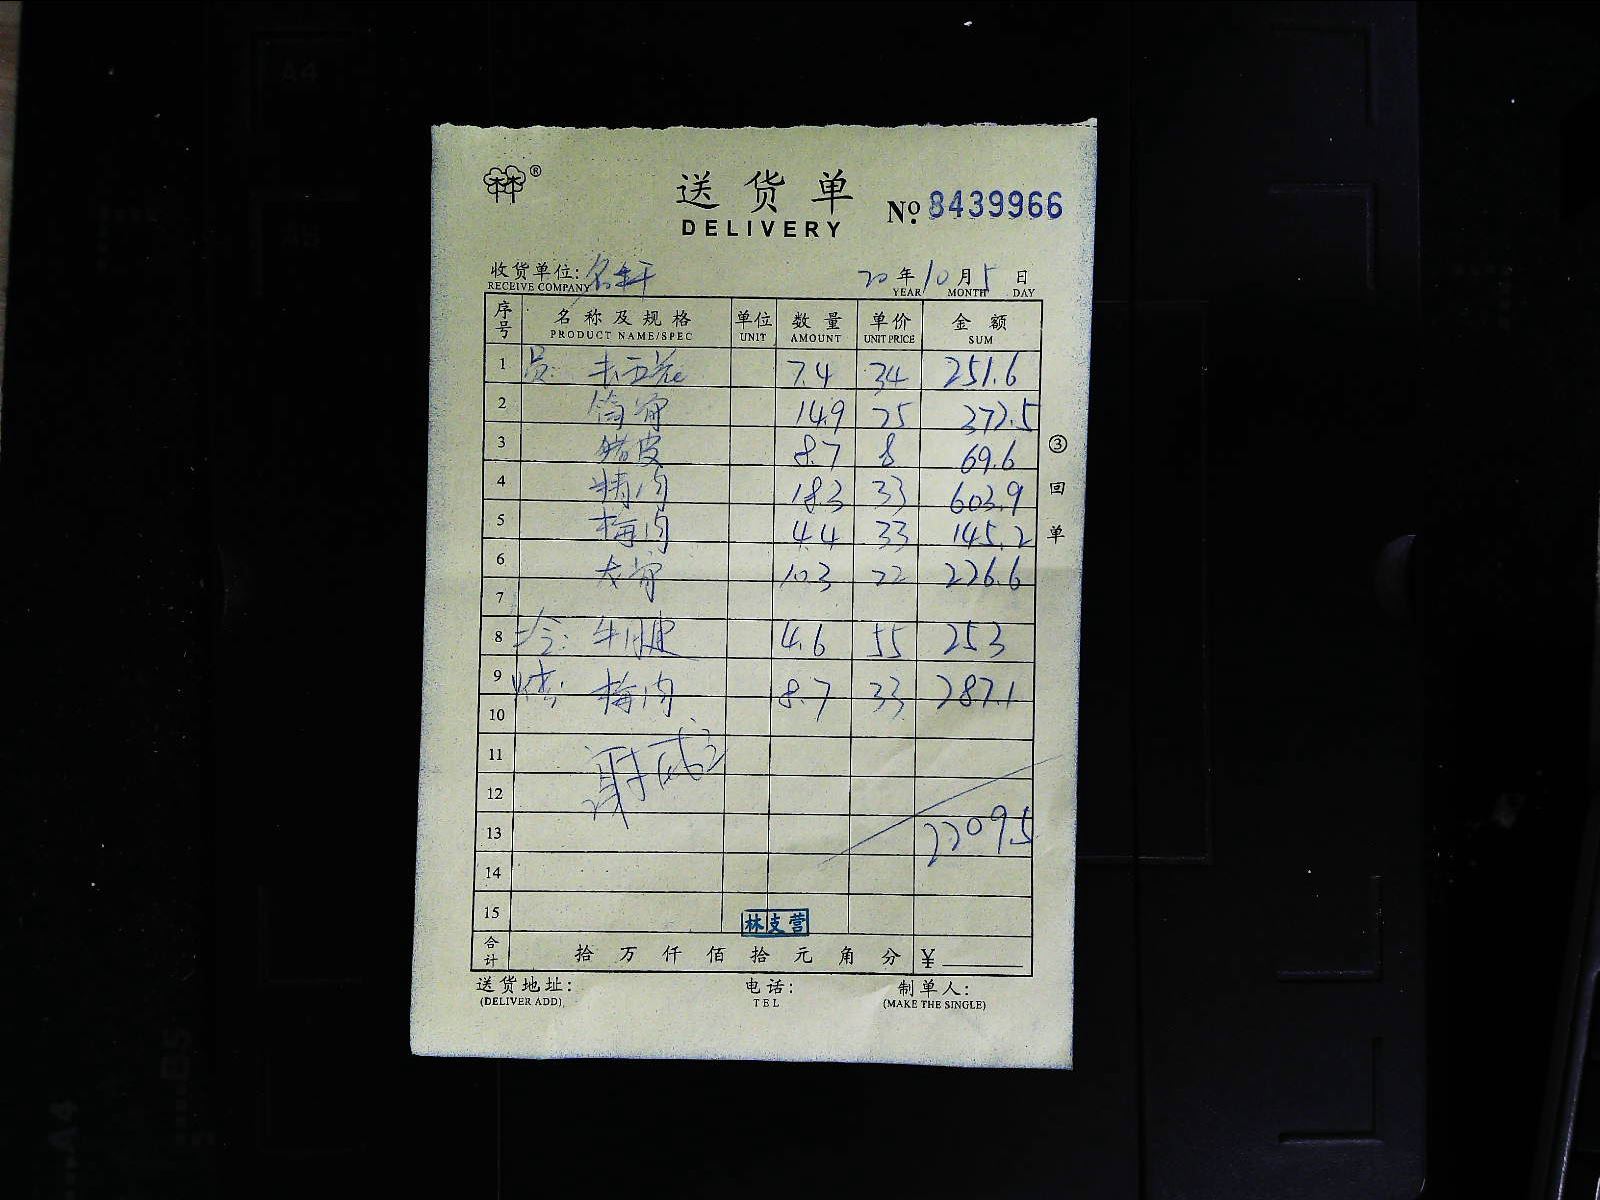 林林®
送货单
DELIVERY
No. 8439966
收货单位: 名轩 20年10月5日
RECEIVE COMPANY YEAR MONTH DAY
序号 名称及规格 单位 数量 单价 金额
PRODUCT NAME/SPEC UNIT AMOUNT UNIT PRICE SUM
1 员: 去五花 7.4 34 251.6
2 筒骨 14.9 25 372.5
3 猪皮 8.7 8 69.6
4 精肉 18.3 33 603.9
5 梅肉 4.4 33 145.2
6 龙骨 10.3 22 226.6
7
8 冷: 牛腱 4.6 55 253
9 烤: 梅肉 8.7 33 287.1
10
11 谢
12
13 2209.5
14
15
林支营
合计 拾万仟佰拾元角分 ¥
送货地址: 电话: 制单人:
(DELIVER ADD) TEL (MAKE THE SINGLE)
③回单
A4
A5
B5
A4